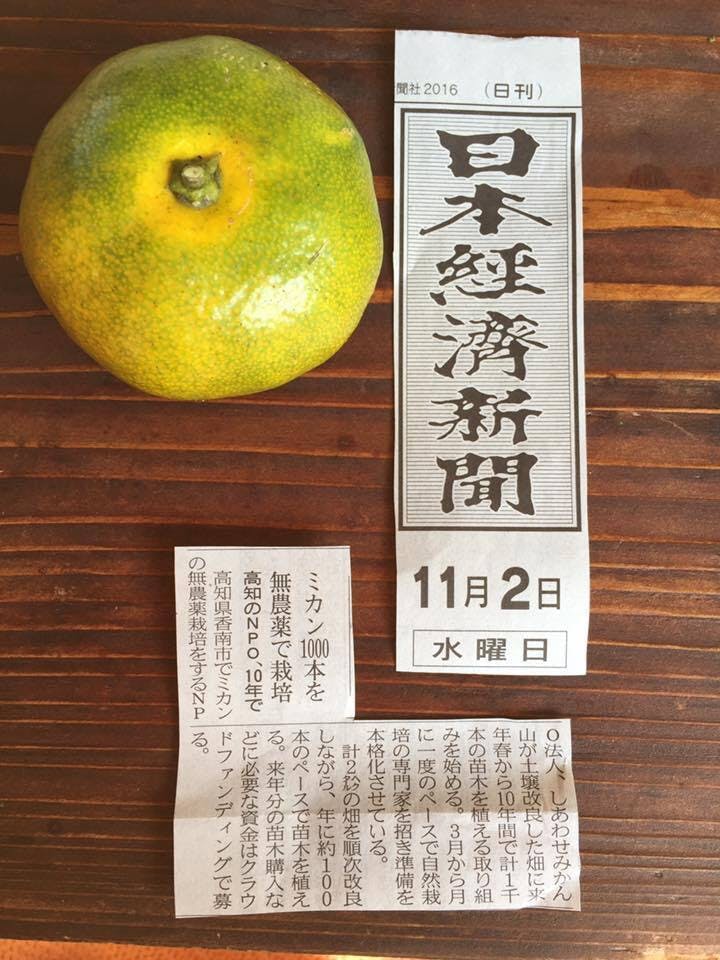 聞社2016 (日刊)
日本経済新聞
11月2日
水曜日
ミカン1000本を
無農薬で栽培
高知のNPO、10年で
高知県香南市でミカン
の無農薬栽培をするNP
O法人、しあわせみかん
山が土壌改良した畑に来
年春から10年間で計1千
本の苗木を植える取り組
みを始める。3月から月
に一度のペースで自然栽
培の専門家を招き準備を
本格化させている。
計2㌶の畑を順次改良
しながら、年に約100
本のペースで苗木を植え
る。来年分の苗木購入な
どに必要な資金はクラウ
ドファンディングで募
る。